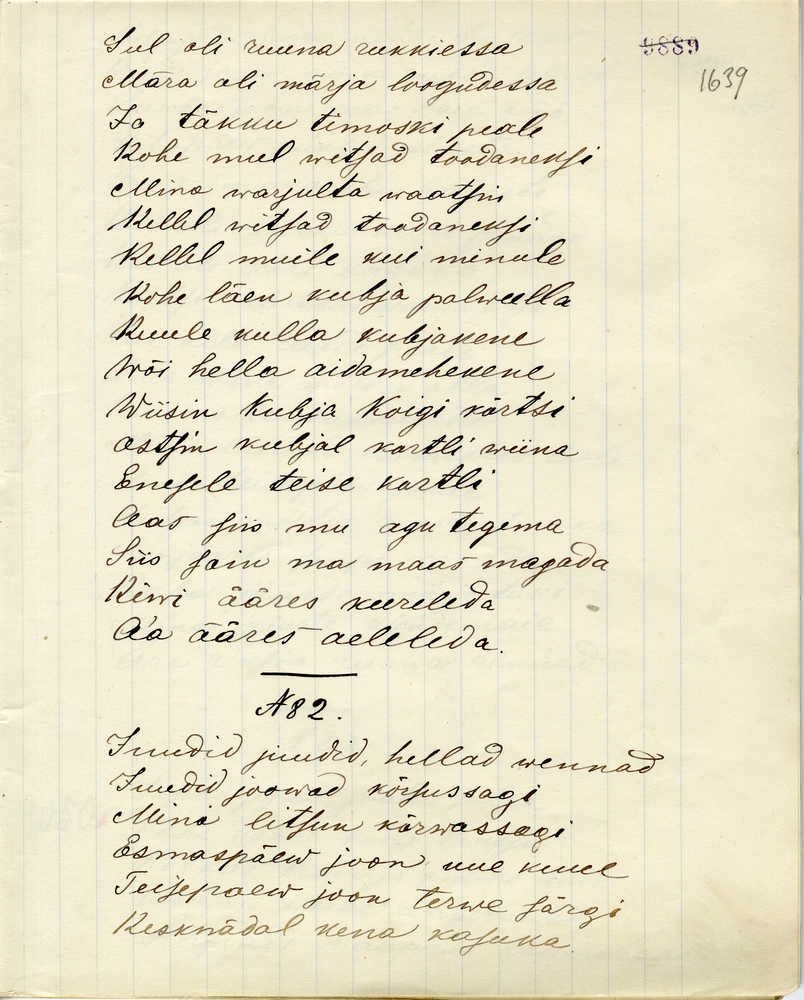 9889
1639
Sul oli ruuna rukkiessa
Mära oli märja loogudessa
Ja täkku timoski peale
Kohe mul witsad toodaneksi
Mina warjulta waatsin
Kellel witsad toodaneksi
Kellel muile kui minule
Kohe läen kubja palweella
Kuule kulla kubjakene
Wõi hella aidamehekene
Wiisin Kubja Koigi kõrtsi
Ostsin kubjal kortli wiina
Enesele teise kortli
Aas siis mu agu tegema
Siis sain ma maas magada
Kiwi ääres keereleda
A'a ääres aeleleda.
N 82.
Juudid juudid, hellad wennad
Juudid joowad kõrsussagi
Mina litsun kõrwassagi
Esmaspäew joon uue kuue
Teisepaew joon terwe särgi
Kesknädal kena kasuka